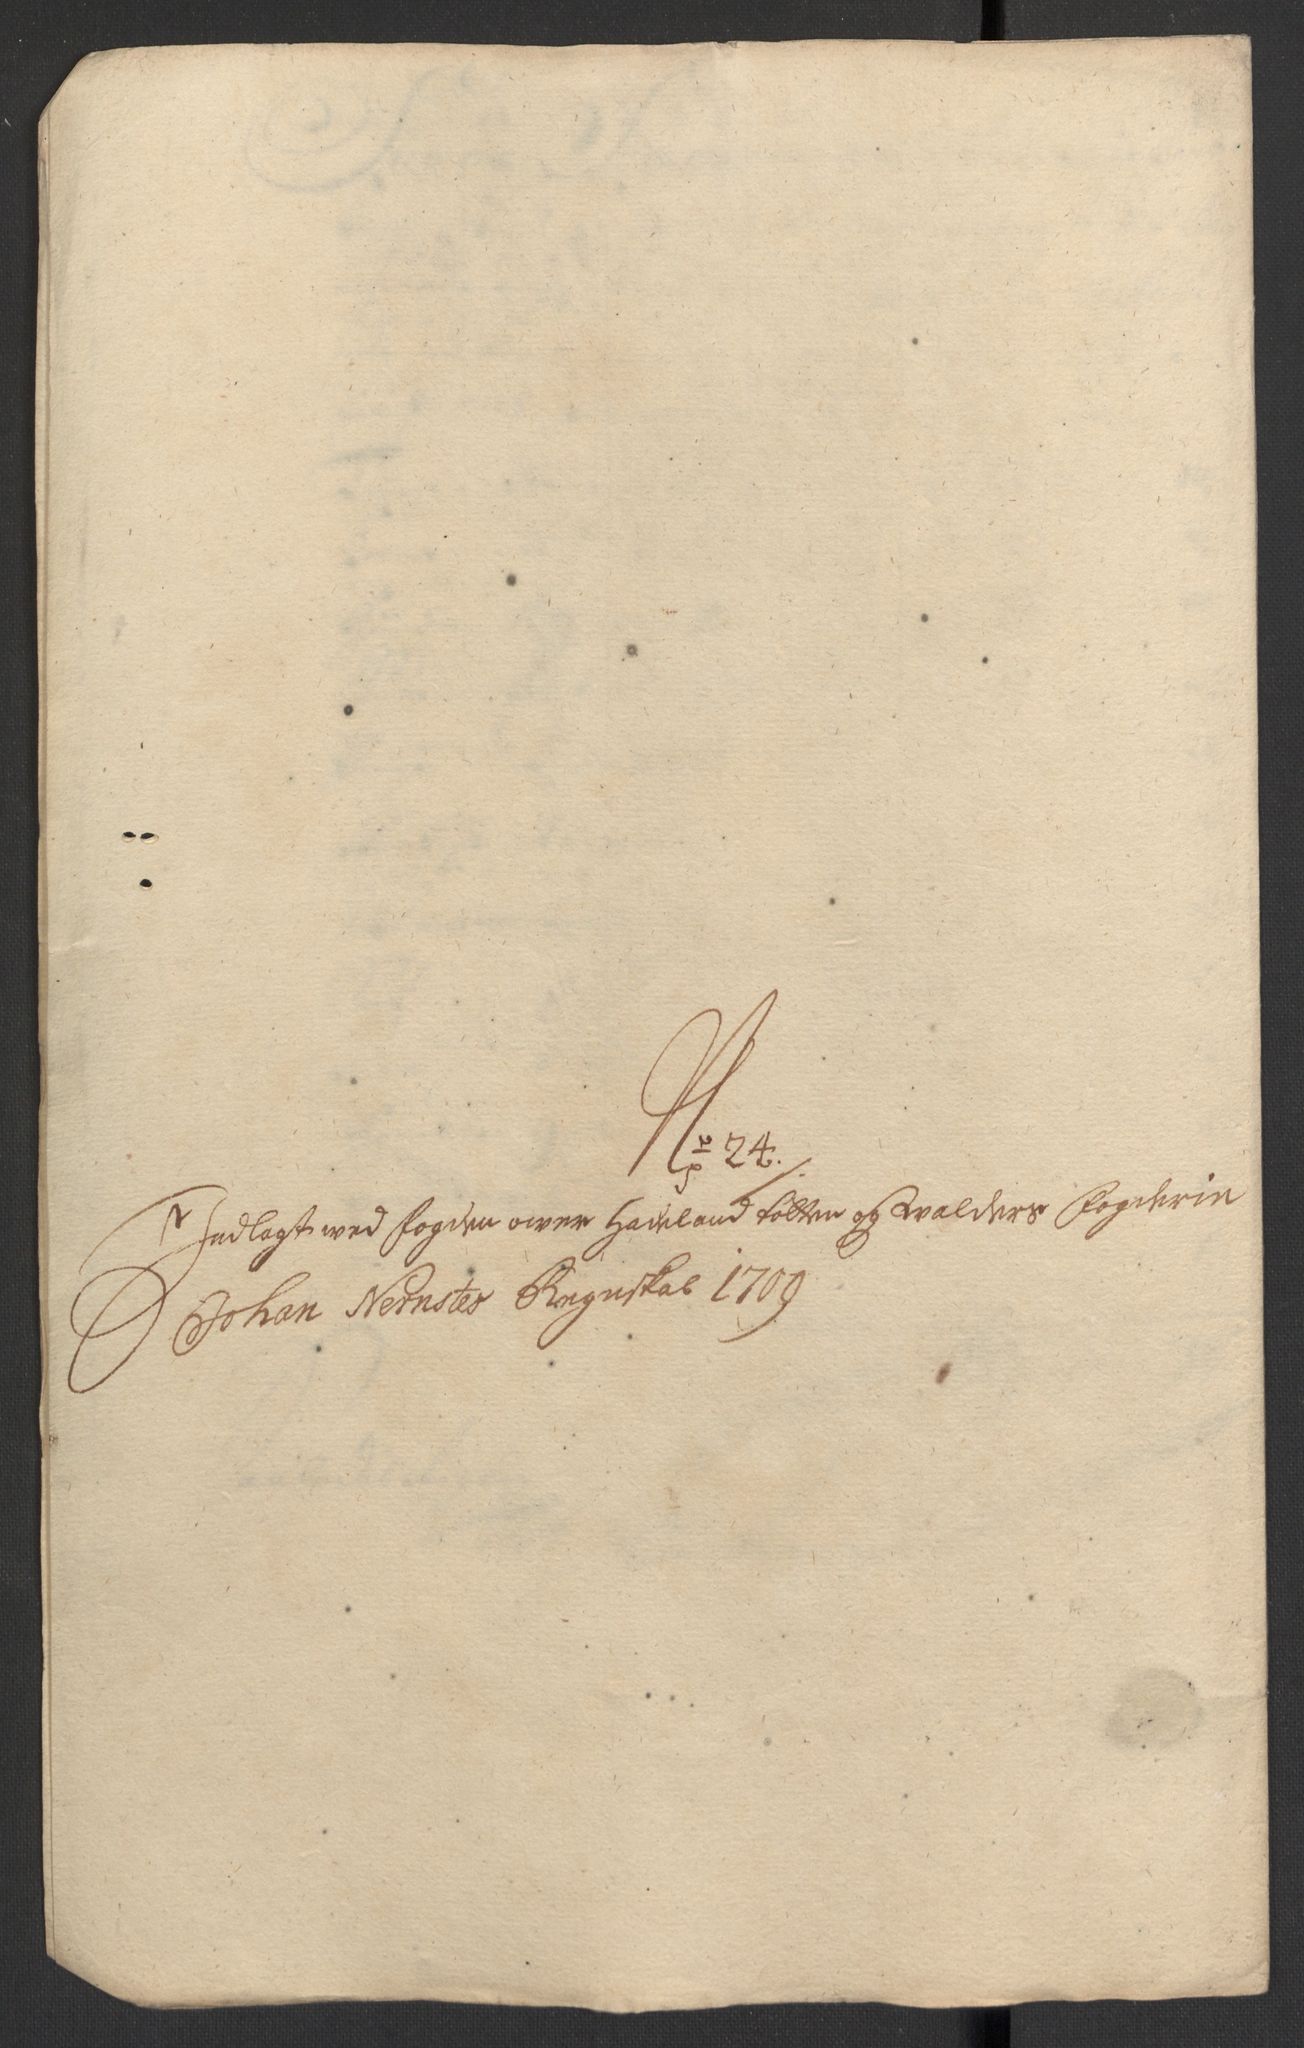 Nr 24.
Indlagt wed fogden ower Hadeland totten og walders fogderie
Johan Nernstes Regnskab 1709